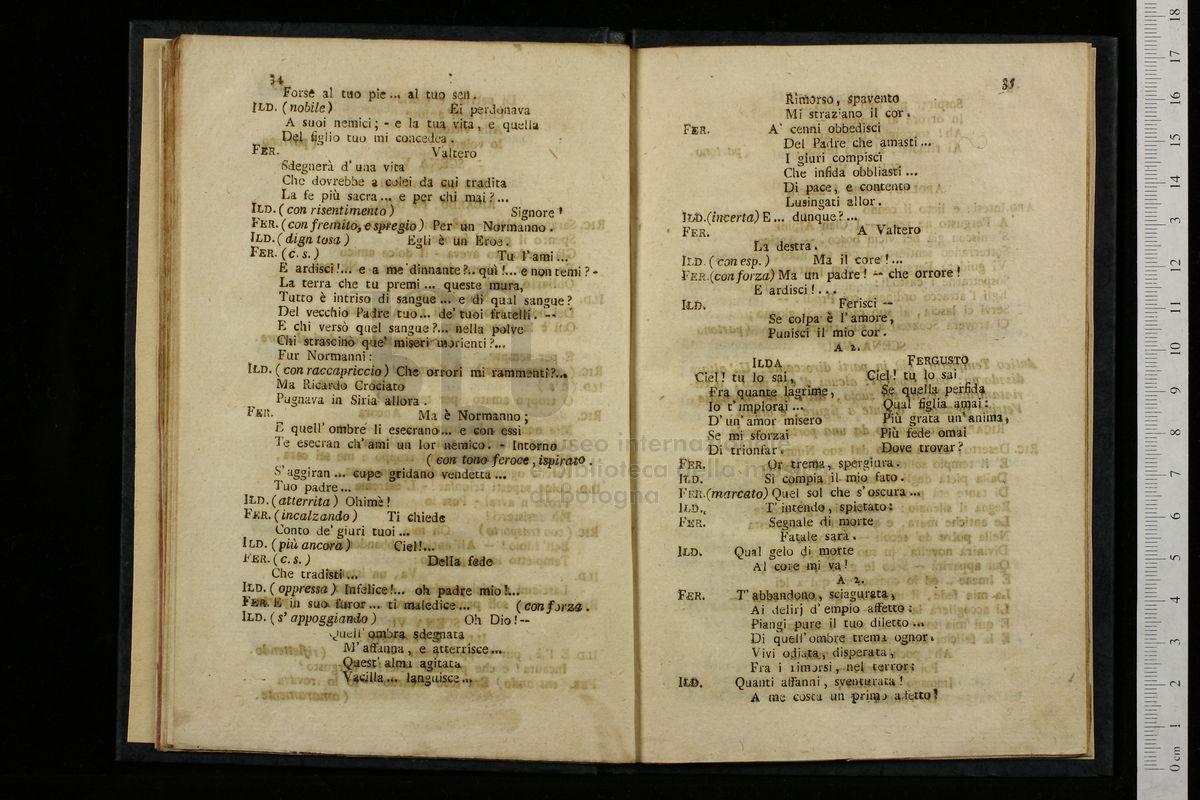 34
Forse al tuo pie ... al tuo sen.
ILD. (nobile) Ei perdonava
A suoi nemici; - e la tua vita, e quella
Del figlio tuo mi concedea.
FER. Valtero
Sdegnerà d' una vita
Che dovrebbe a colei da cui tradita
La fe più sacra ... e per chi mai? ...
ILD. (con risentimento) Signore!
FER. (con fremito, e spregio) Per un Normanno.
ILD. (dign tosa) Egli è un Eroe.
FER. (c. s.) Tu l' ami ...
E ardisci!... e a me dinnante?.. quì!... e non temi? -
La terra che tu premi ... queste mura,
Tutto è intriso di sangue ... e di qual sangue?
Del vecchio Padre tuo ... de' tuoi fratelli. --
E chi versò quel sangue? ... nella polve
Chi strascinò que' miseri morienti? ...
Fur Normanni:
ILD. (con raccapriccio) Che orrori mi rammenti? ...
Ma Ricardo Crociato
Pugnava in Siria allora.
FER. Ma è Normanno;
E quell' ombre li esecrano ... e con essi
Te esecran ch' ami un lor nemico. - Intorno
(con tono feroce, ispirato
S' aggiran ... cupe gridano vendetta ...
Tuo padre ...
ILD. (atterrita) Ohimè!
FER. (incalzando) Ti chiede
Conto de' giuri tuoi ...
ILD. (più ancora) Ciel!...
FER. (c. s.) Della fede
Che tradisti ...
ILD. (oppressa) Infelice!... oh padre mio!...
FER. E in suo furor ... ti maledice ... (con forza.
ILD. (s' appoggiando) Oh Dio! --
Quell' ombra sdegnata
M' affanna, e atterrisce ...
Quest' alma agitata
Vacilla ... languisce ...
35
Rimorso, spavento
Mi straziano il cor.
FER. A' cenni obbedisci
Del Padre che amasti ...
I giuri compisci
Che infida obbliasti ...
Di pace, e contento
Lusingati allor.
ILD. (incerta) E ... dunque? ...
FER. A Valtero
La destra.
ILD. (con esp.) Ma il core! ...
FER. (con forza) Ma un padre! -- che orrore!
E ardisci! ...
ILD. Ferisci --
Se colpa è l' amore,
Punisci il mio cor.
A 2.
ILDA
Ciel! tu lo sai,
Fra quante lagrime,
Io t' implorai ...
D' un' amor misero
Se mi sforzai
Di trionfar.
FERGUSTO
Ciel! tu lo sai
Se quella perfida
Qual figlia amai:
Più grata un' anima,
Più fede omai
Dove trovar?
FER. Or trema, spergiura.
ILD. Si compia il mio fato.
FER. (marcato) Quel sol che s' oscura ...
ILD. T' intendo, spietato:
FER. Segnale di morte
Fatale sarà.
ILD. Qual gelo di morte
Al core mi va!
A 2.
FER. T' abbandono, sciagurata,
Ai delirj d' empio affetto:
Piangi pure il tuo diletto ...
Di quell' ombre trema ognor.
Vivi odiata, disperata,
Fra i rimorsi, nel terror;
ILD. Quanti affanni, sventurata!
A me costa un primo affetto!
museo internazionale
e biblioteca della musica
di bologna
0 cm 1 2 3 4 5 6 7 8 9 10 11 12 13 14 15 16 17 18